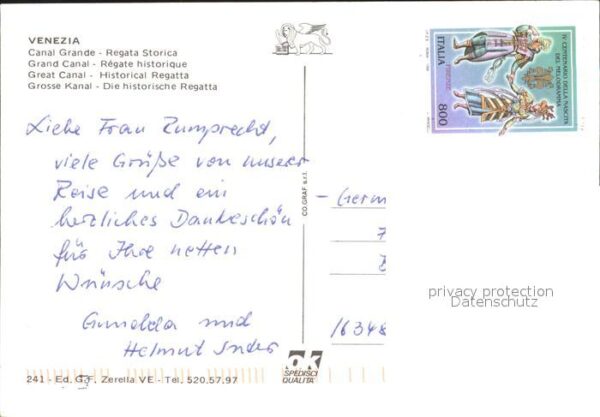 VENEZIA
Canal Grande - Regata Storica
Grand Canal - Régate historique
Great Canal - Historical Regatta
Grosse Kanal - Die historische Regatta
Liebe Frau
viele Grüße von unserer
Reise und ein
herzliches Dankeschön
für Ihre netten
Wünsche
und
Helmut
CO.GRAF s.r.l.
IV CENTENARIO DELLA NASCITA
DEL MELODRAMMA
ITALIA
800
Germ
16348
privacy protection
Datenschutz
OK
SPEDISCI
QUALITÀ
241 - Ed. G.F. Zerella VE - Tel. 520.57.97